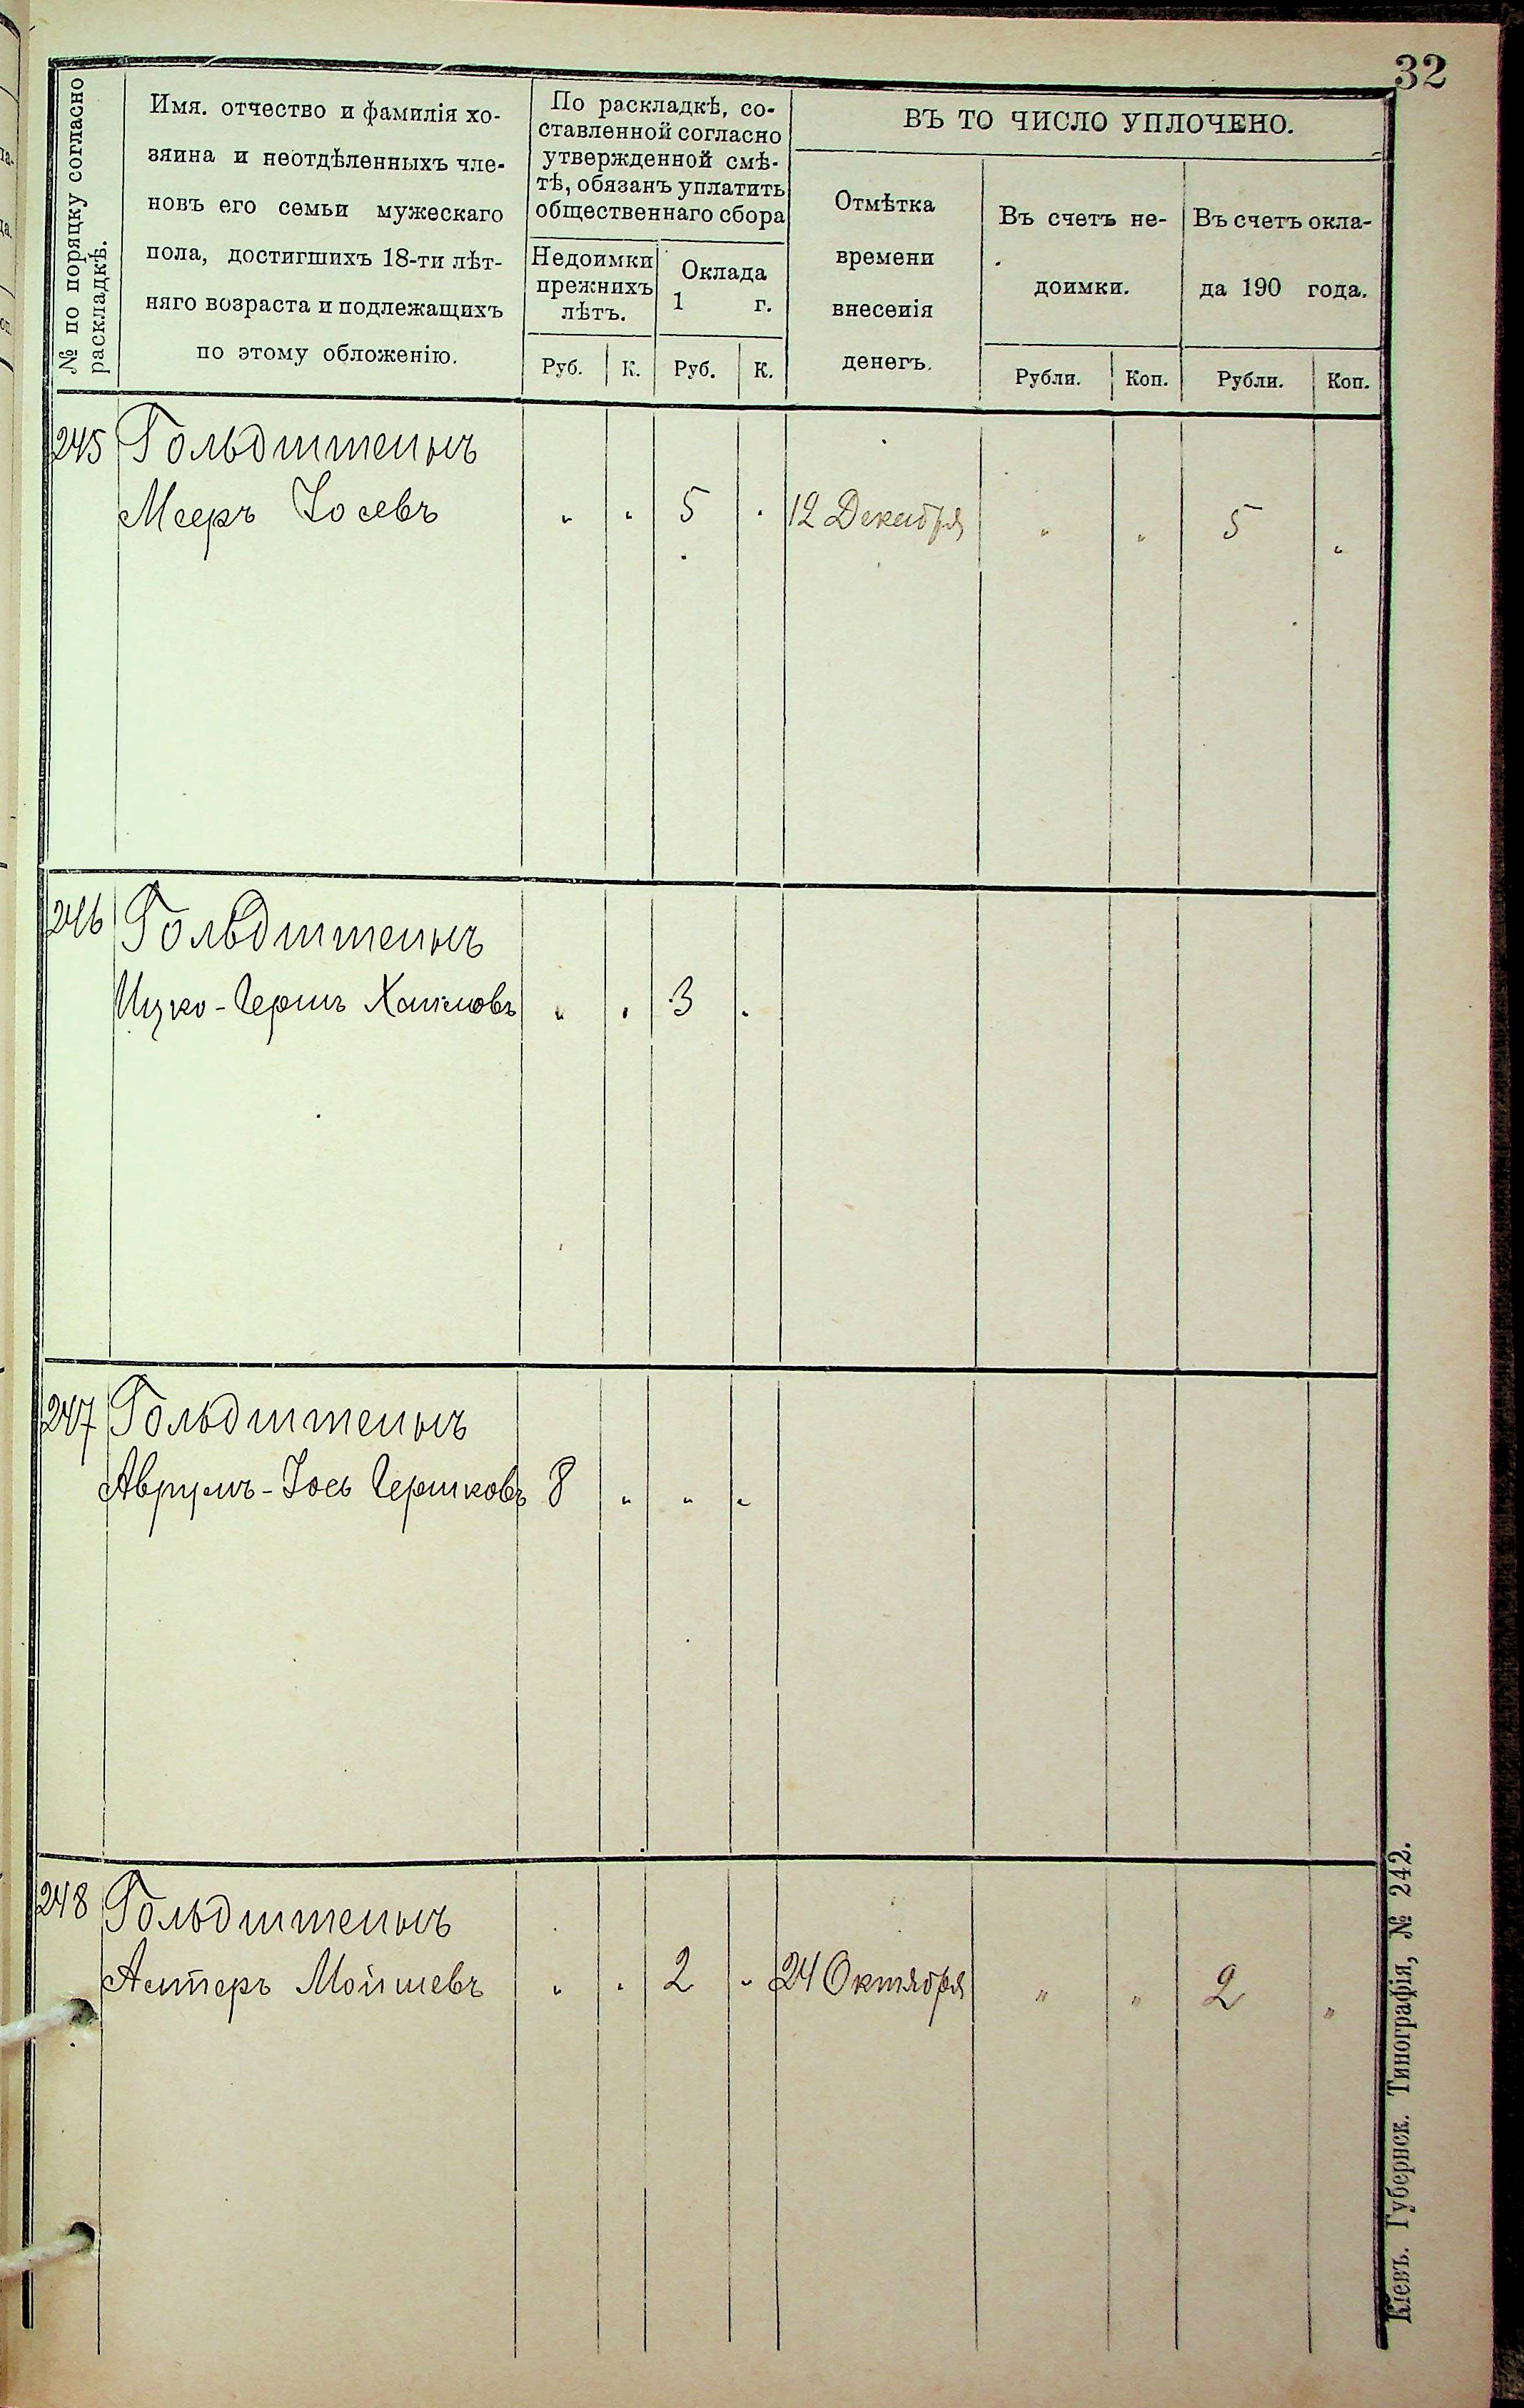 32
№ по поряцку согласно
раскладкѣ.
Имя. отчество и фамилія хо-
зяина и неотдѣленныхъ чле-
новъ его семьи мужескаго
пола, достигшихъ 18-ти лѣт-
няго возраста и подлежащихъ
по этому обложенію.
По раскладкѣ, со-
ставленной согласно
утвержденной смѣ-
тѣ, обязанъ уплатить
общественнаго сбора
Недоимки
прежнихъ
лѣтъ.
Оклада
1 г.
Руб. К. Руб. К.
ВЪ ТО ЧИСЛО УПЛОЧЕНО.
Отмѣтка
времени
внесенія
денегъ.
Въ счетъ не-
доимки.
Въ счетъ окла-
да 190 года.
Рубли. Коп. Рубли. Коп.
245 Гольдштейнъ
Мееръ Іосевъ " " 5 " 12 Декабря " " 5 "
246 Гольдштейнъ
Ицко-Гершъ Хаимовъ " " 3 "
247 Гольдштейнъ
Аврумъ-Іось Гершковъ 8 " " "
248 Гольдштейнъ
Мойшевъ " " 2 " 24 Октября " " 2 "
Кіевъ. Губернск. Типографія, № 242.